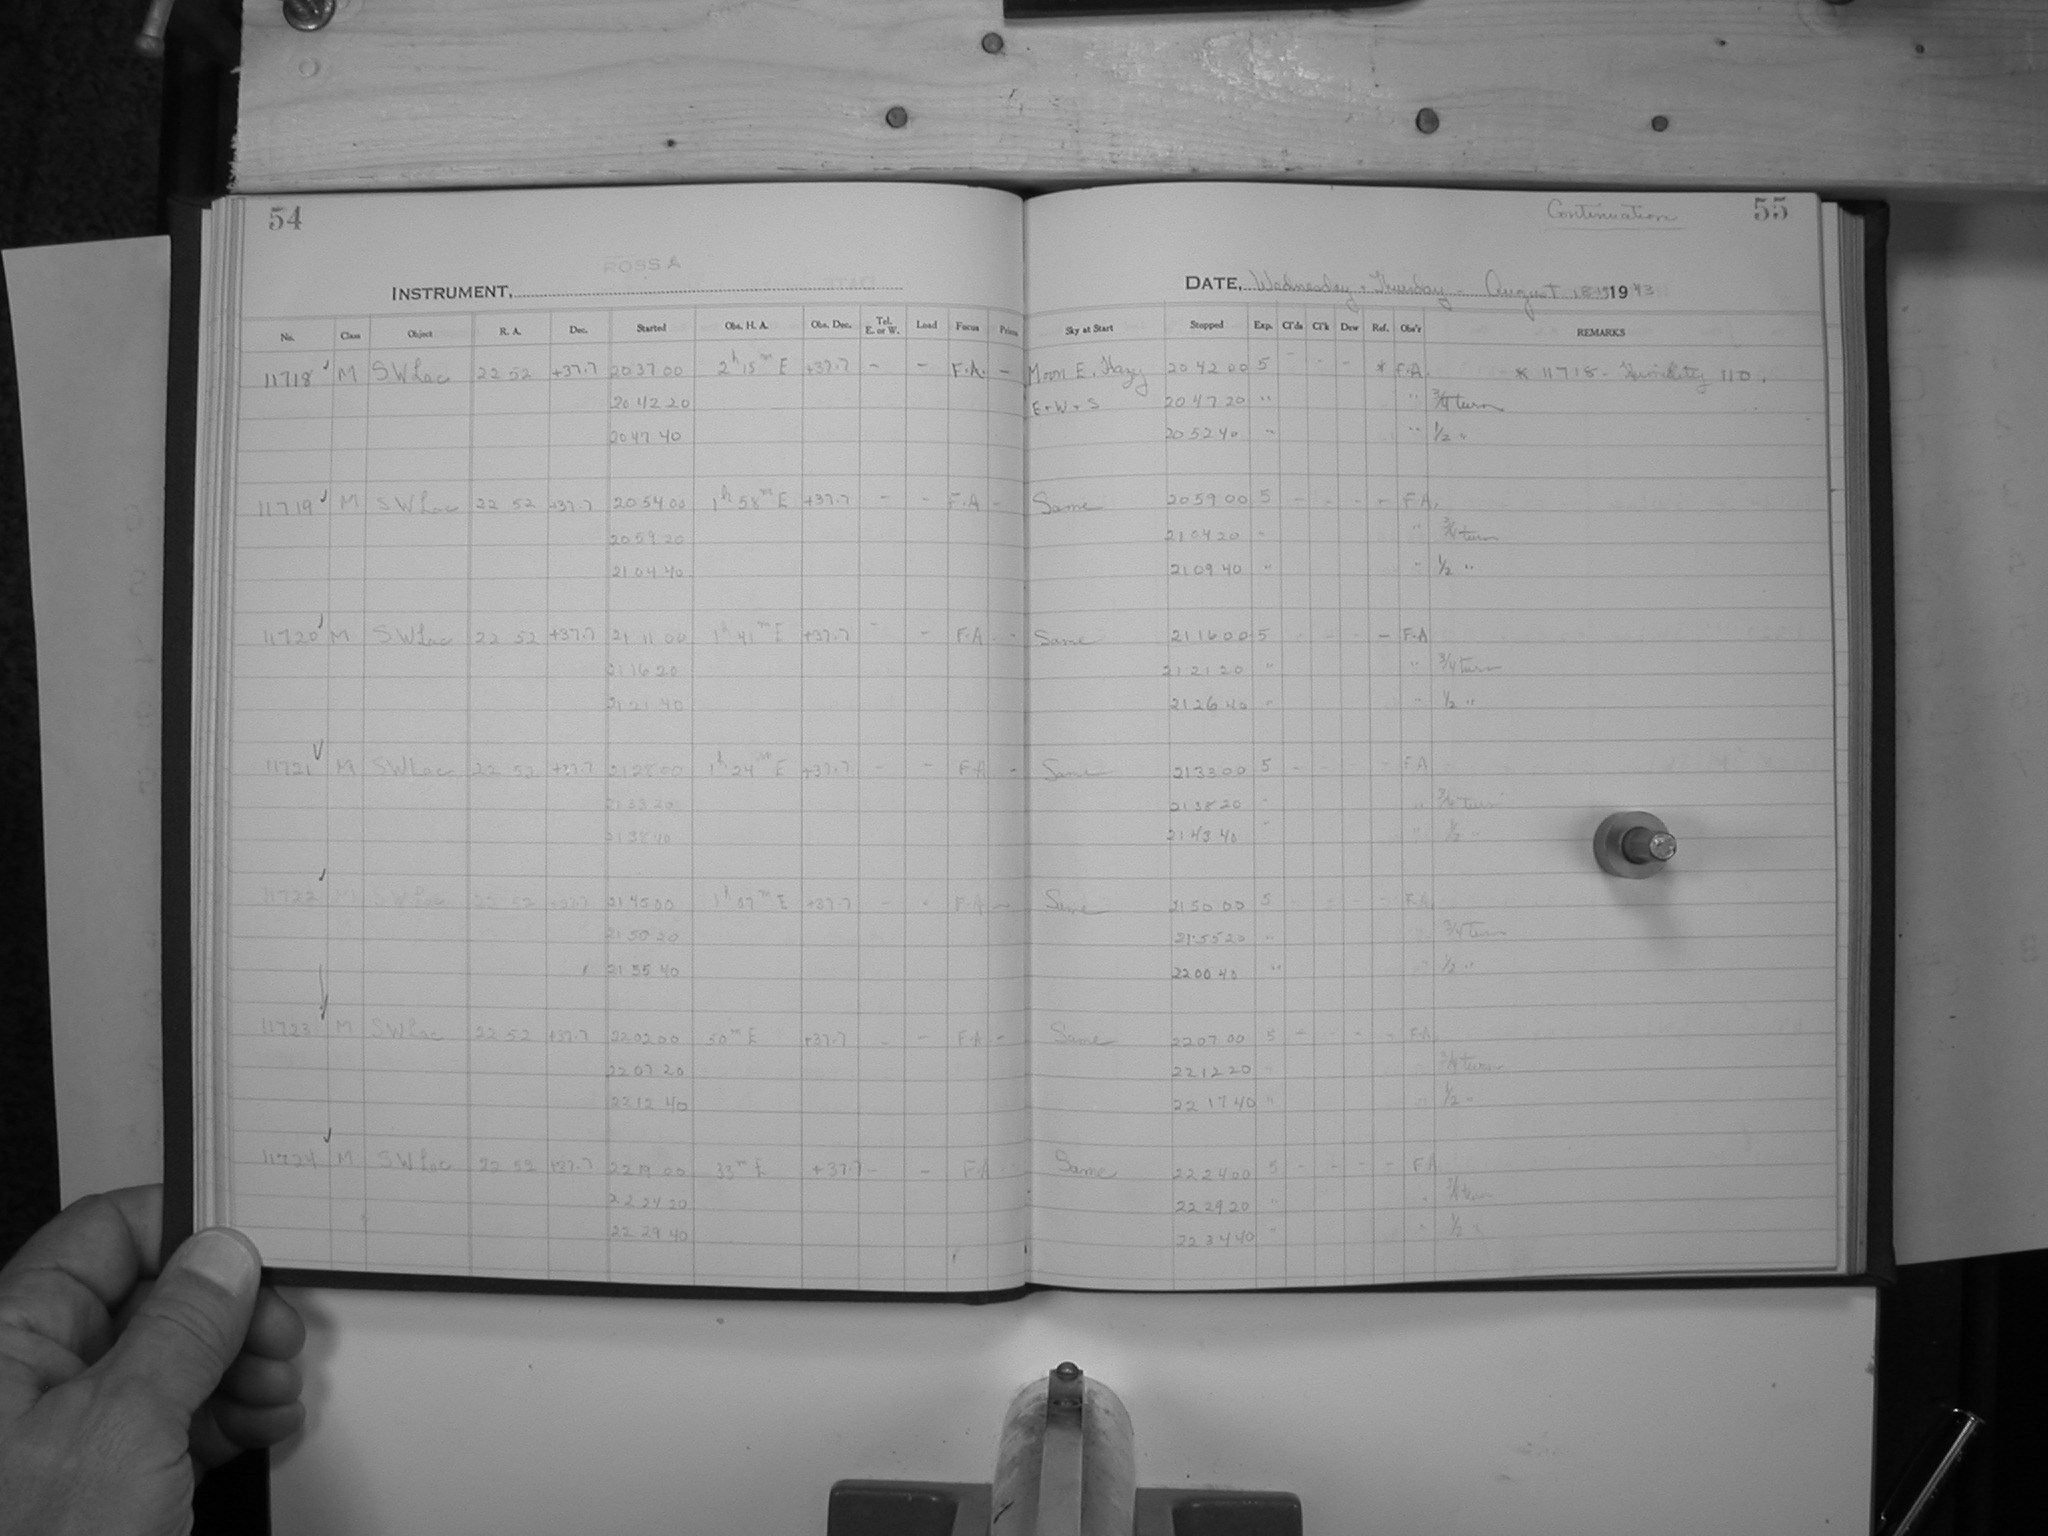 54
Continuation 55
ROSS A
INSTRUMENT,
DATE, Wednesday - Thursday - August 18-19 1943
No. Class Object R. A. Dec. Started Obs. H. A. Obs. Dec. Tel. E. or W. Load Focus Prism Sky at Start Stopped Exp. Cl'ds Cl'k Dew Ref. Obs'r REMARKS
11718 M SW Lac 22 52 +37.7 20 37 00 2h 15m E +37.7 - - F.A. - Moon E. Hazy 20 42 00 5 - - - * F.A. * 11718 - Humidity 110.
20 42 20 E + W + S 20 47 20 " " 3/4 turn
20 47 40 20 52 40 " " 1/2 "
11719 M SW Lac 22 52 +37.7 20 54 00 1h 58m E +37.7 - - F.A - Same 20 59 00 5 - - - - F A.
20 59 20 21 04 20 " " 3/4 turn
21 04 40 21 09 40 " " 1/2 "
11720 M SW Lac 22 52 +37.7 21 11 00 1h 41m E +37.7 - - F.A - Same 21 16 00 5 - - - - F.A
21 16 20 21 21 20 " " 3/4 turn
21 21 40 21 26 40 " " 1/2 "
11721 M SW Lac 22 52 +37.7 21 28 00 1h 24m E +37.7 - - F A - Same 21 33 00 5 - - - - F A
21 33 20 21 38 20 " " 3/4 turn
21 38 40 21 43 40 " " 1/2 "
11722 M SW Lac 22 52 +37.7 21 45 00 1h 07m E +37.7 - - F.A - Same 21 50 00 5 - - - - F.A.
21 50 20 21 55 20 " " 3/4 turn
21 55 40 22 00 40 " " 1/2 "
11723 M SW Lac 22 52 +37.7 22 02 00 50m E +37.7 - - F.A - Same 22 07 00 5 - - - - F.A.
22 07 20 22 12 20 " 3/4 turn
22 12 40 22 17 40 " " 1/2 "
11724 M SW Lac 22 52 +37.7 22 19 00 33m E +37.7 - - F.A - Same 22 24 00 5 - - - - F A
22 24 20 22 29 20 " " 3/4 turn
22 29 40 22 34 40 " " 1/2 "